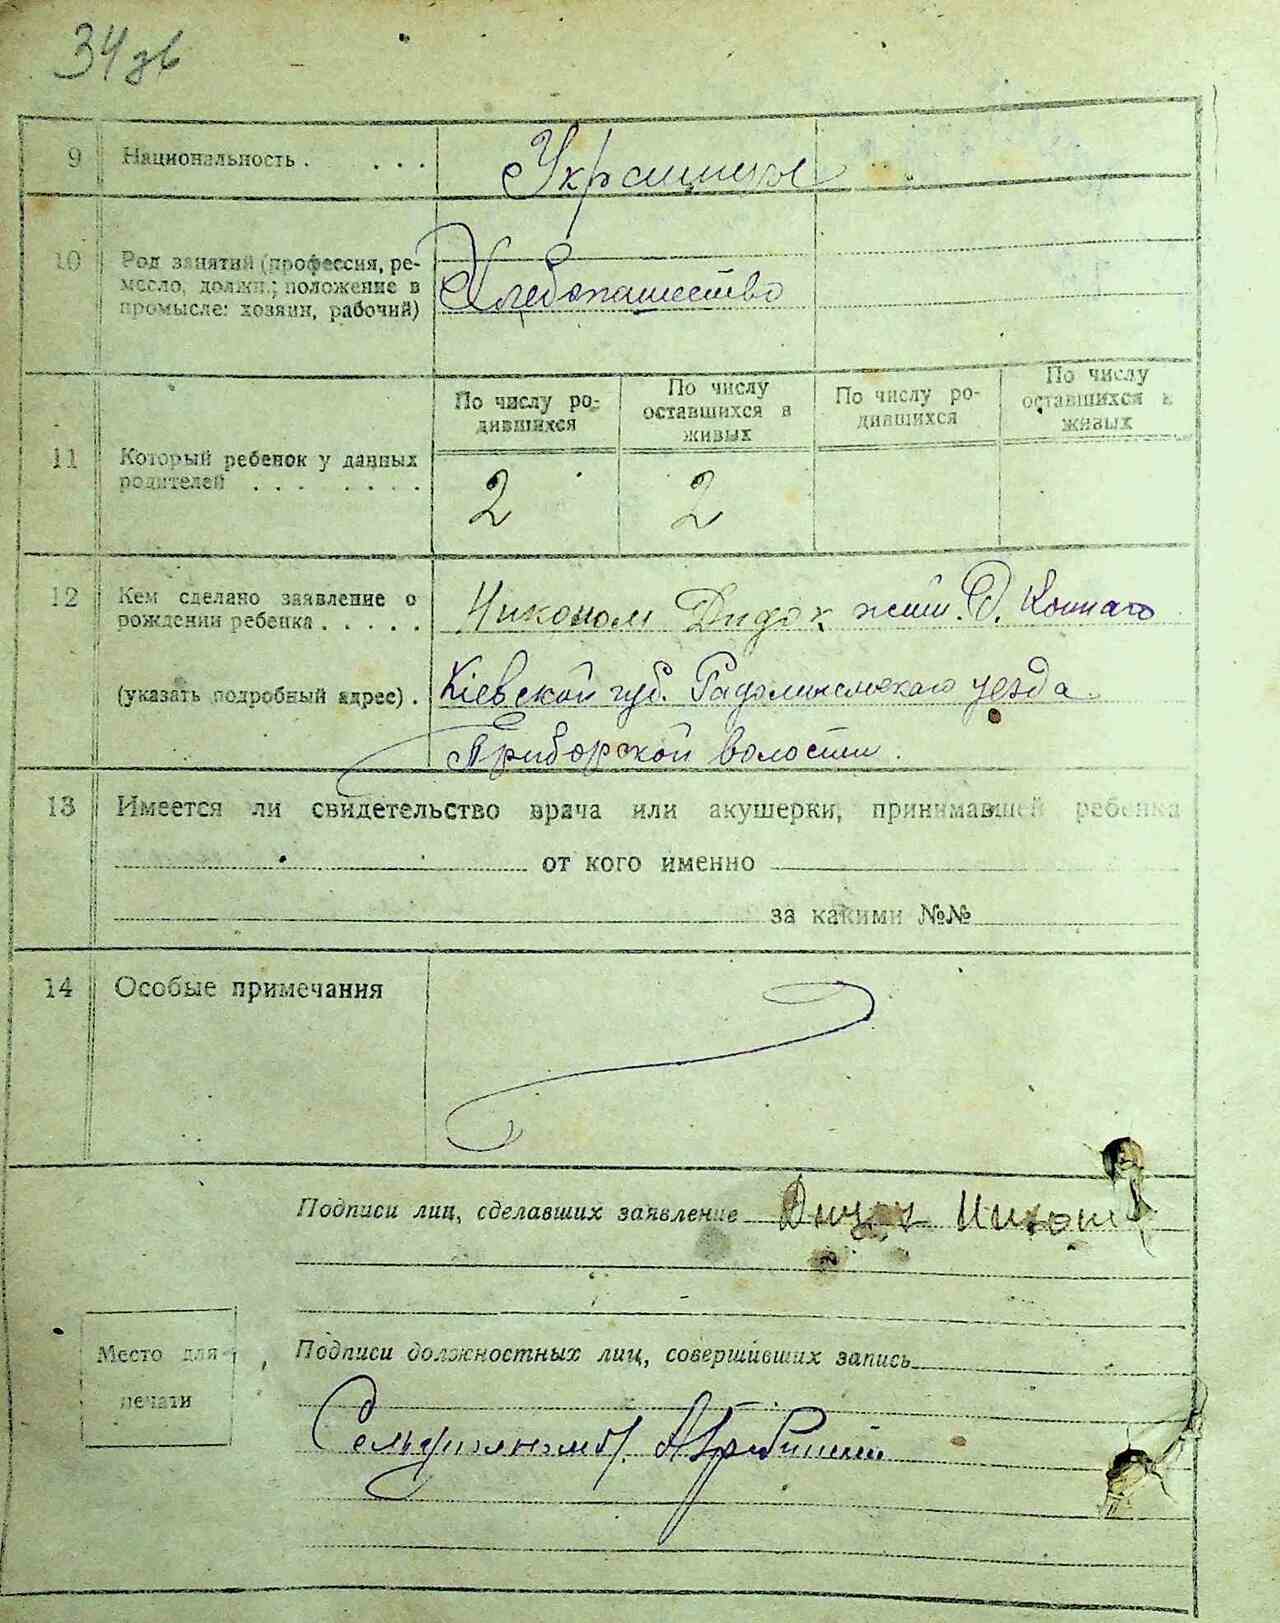 34 зв
9 Национальность . . . . Украинцы
10 Род занятий (профессия, ре-
месло, должн.; положение в
промысле: хозяин, рабочий) Хлебопашество
По числу ро-
дившихся
По числу
оставшихся в
живых
По числу ро-
дившихся
По числу
оставшихся в
живых
11 Который ребенок у данных
родителей . . . . . . . 2 2
12 Кем сделано заявление о
рождении ребенка . . . . . Никоном Дидох жит. д.
(указать подробный адрес) . Кіевской губ. уезда
Приборской волости.
13 Имеется ли свидетельство врача или акушерки, принимавшей ребенка
от кого именно
за какими №№
14 Особые примечания
Подписи лиц, сделавших заявление Никон
Место для
печати
Подписи должностных лиц, совершивших запись